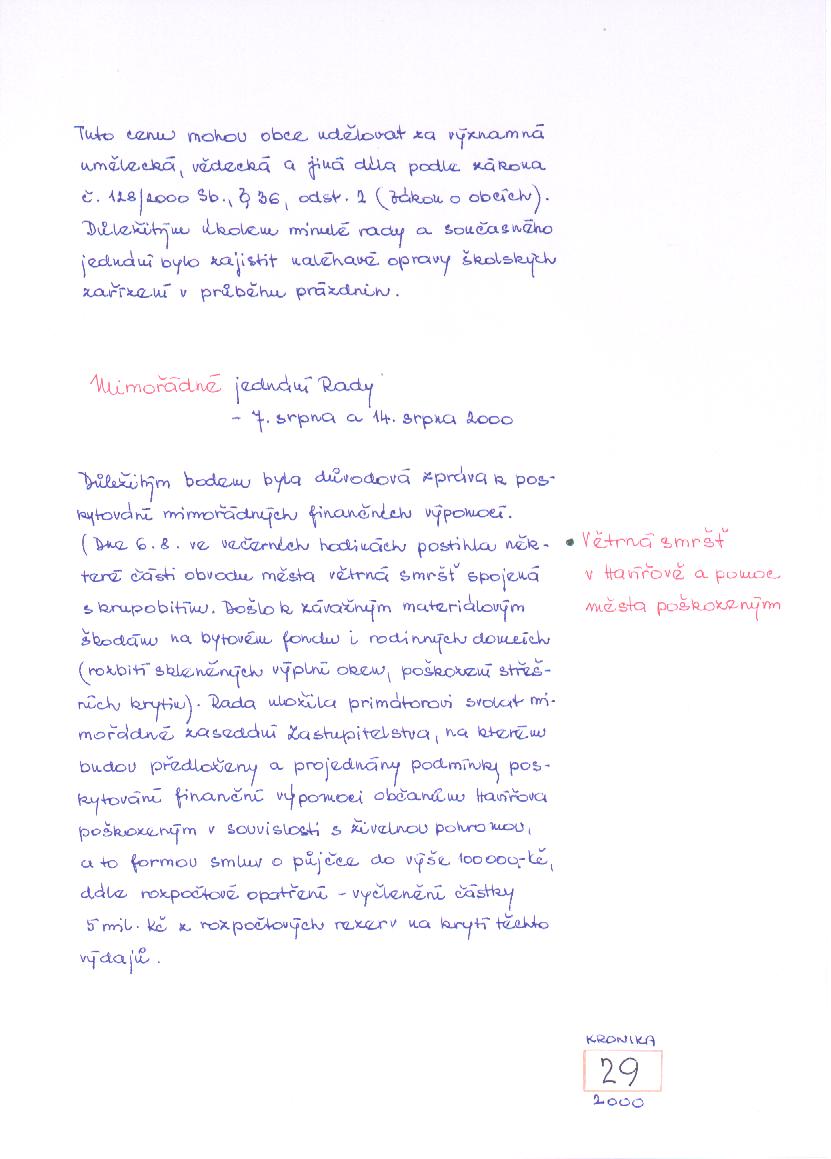 Tuto cenu mohou obce udělovat za významná
umělecká, vědecká a jiná díla podle zákona
č. 128/2000 Sb., § 36, odst. 2 (Zákon o obcích).
Důležitým úkolem minulé rady a současného
jednání bylo zajistit naléhavé opravy školských
zařízení v průběhu prázdnin.
Mimořádné jednání Rady
- 7. srpna a 14. srpna 2000
Důležitým bodem byla důvodová zpráva k pos-
kytování mimořádných finančních výpomocí.
(Dne 6.8. ve večerních hodinách postihla něk-
teré části obvodu města větrná smršť spojená
s krupobitím. Došlo k závažným materiálovým
škodám na bytovém fondu i rodinných domcích
(rozbití skleněných výplní oken, poškození střeš-
ních krytin). Rada uložila primátorovi svolat mi-
mořádné zasedání Zastupitelstva, na kterém
budou předloženy a projednány podmínky pos-
kytování finanční výpomoci občanům Havířova
poškozeným v souvislosti s živelnou pohromou,
a to formou smluv o půjčce do výše 100000,-kč,
dále rozpočtové opatření - vyčlenění částky
5 mil. kč z rozpočtových rezerv na krytí těchto
výdajů.
• Větrná smršť
v Havířově a pomoc
města poškozeným
KRONIKA
29
2000